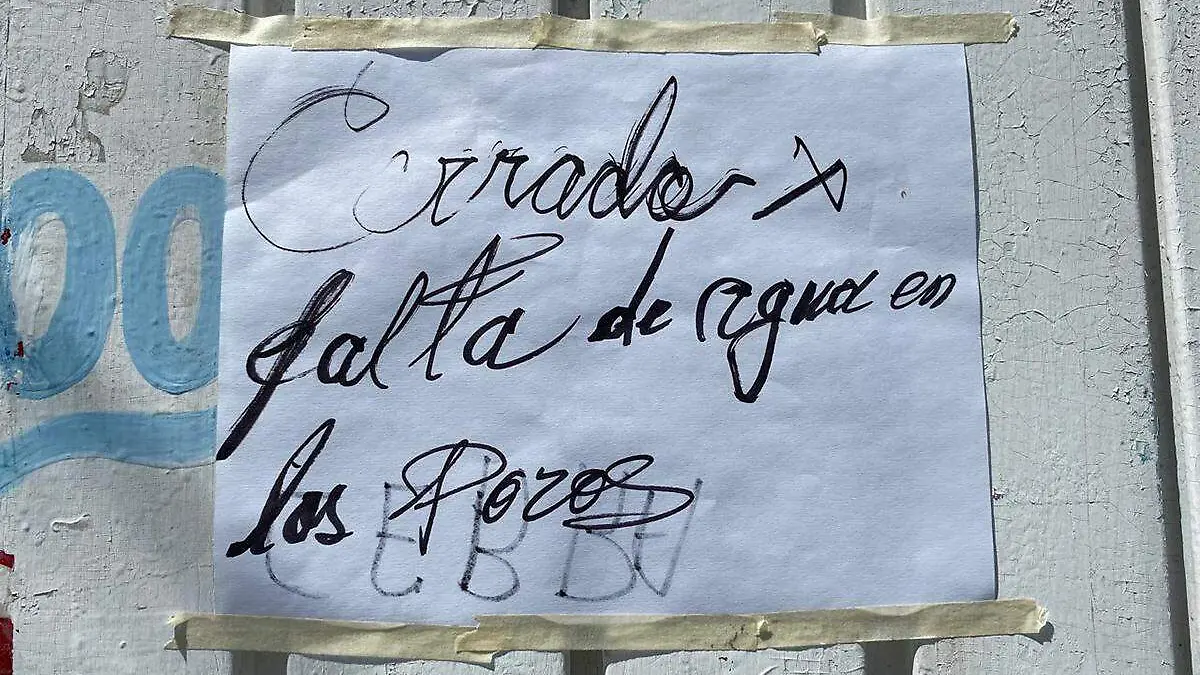 Cerrado x
falta de agua en
los Pozos
00